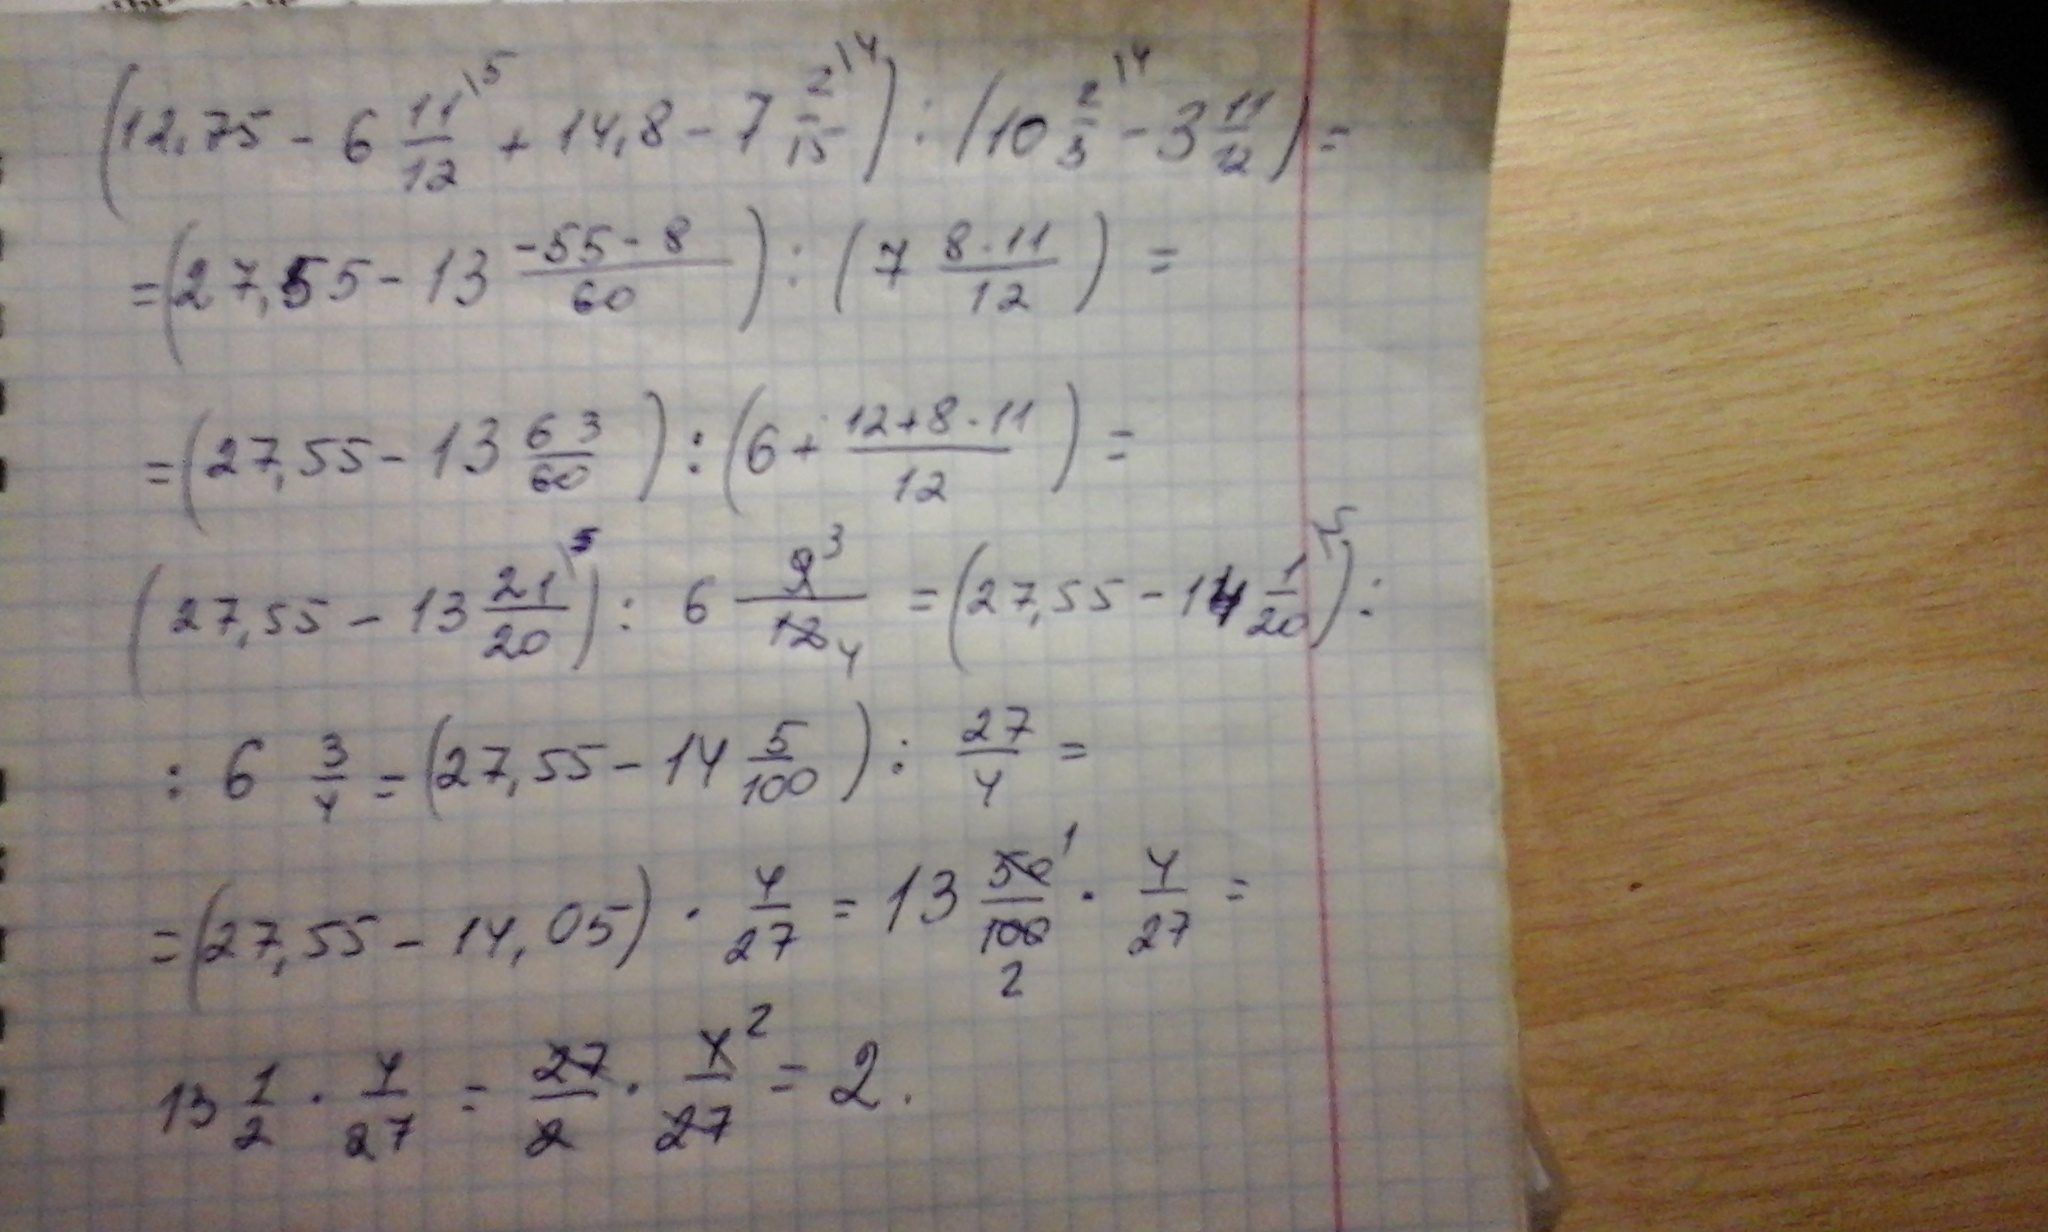 (12,75 - 6 11/12 \5 + 14,8 - 7 2/15 \4) : (10 2/3 \4 - 3 11/12) =
= (27,55 - 13 (-55 - 8)/60) : (7 (8 - 11)/12) =
= (27,55 - 13 63/60) : (6 + (12+8-11)/12) =
(27,55 - 13 21/20 \5) : 6 9/12 3/4 = (27,55 - 14 1/20 \5) :
: 6 3/4 = (27,55 - 14 5/100) : 27/4 =
= (27,55 - 14,05) · 4/27 = 13 50/100 1/2 · 4/27 =
13 1/2 · 4/27 = 27/2 · 4/27 2 = 2.